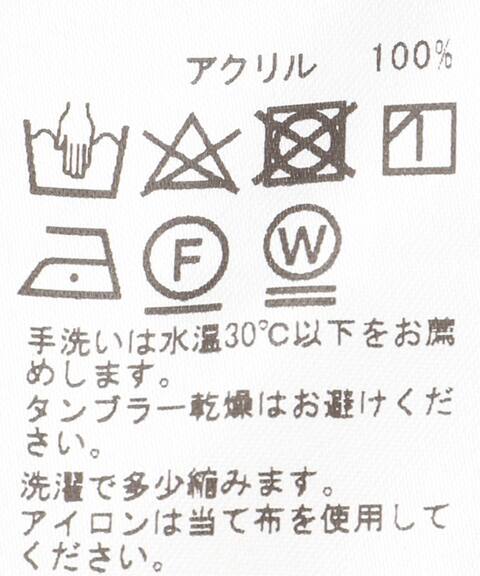 アクリル 100%
F W
手洗いは水温30℃以下をお薦
めします。
タンブラー乾燥はお避けくだ
さい。
洗濯で多少縮みます。
アイロンは当て布を使用して
ください。